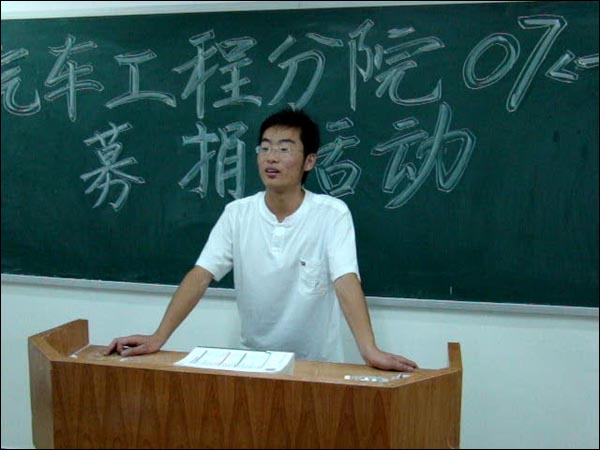 汽车工程分院07
募捐活动